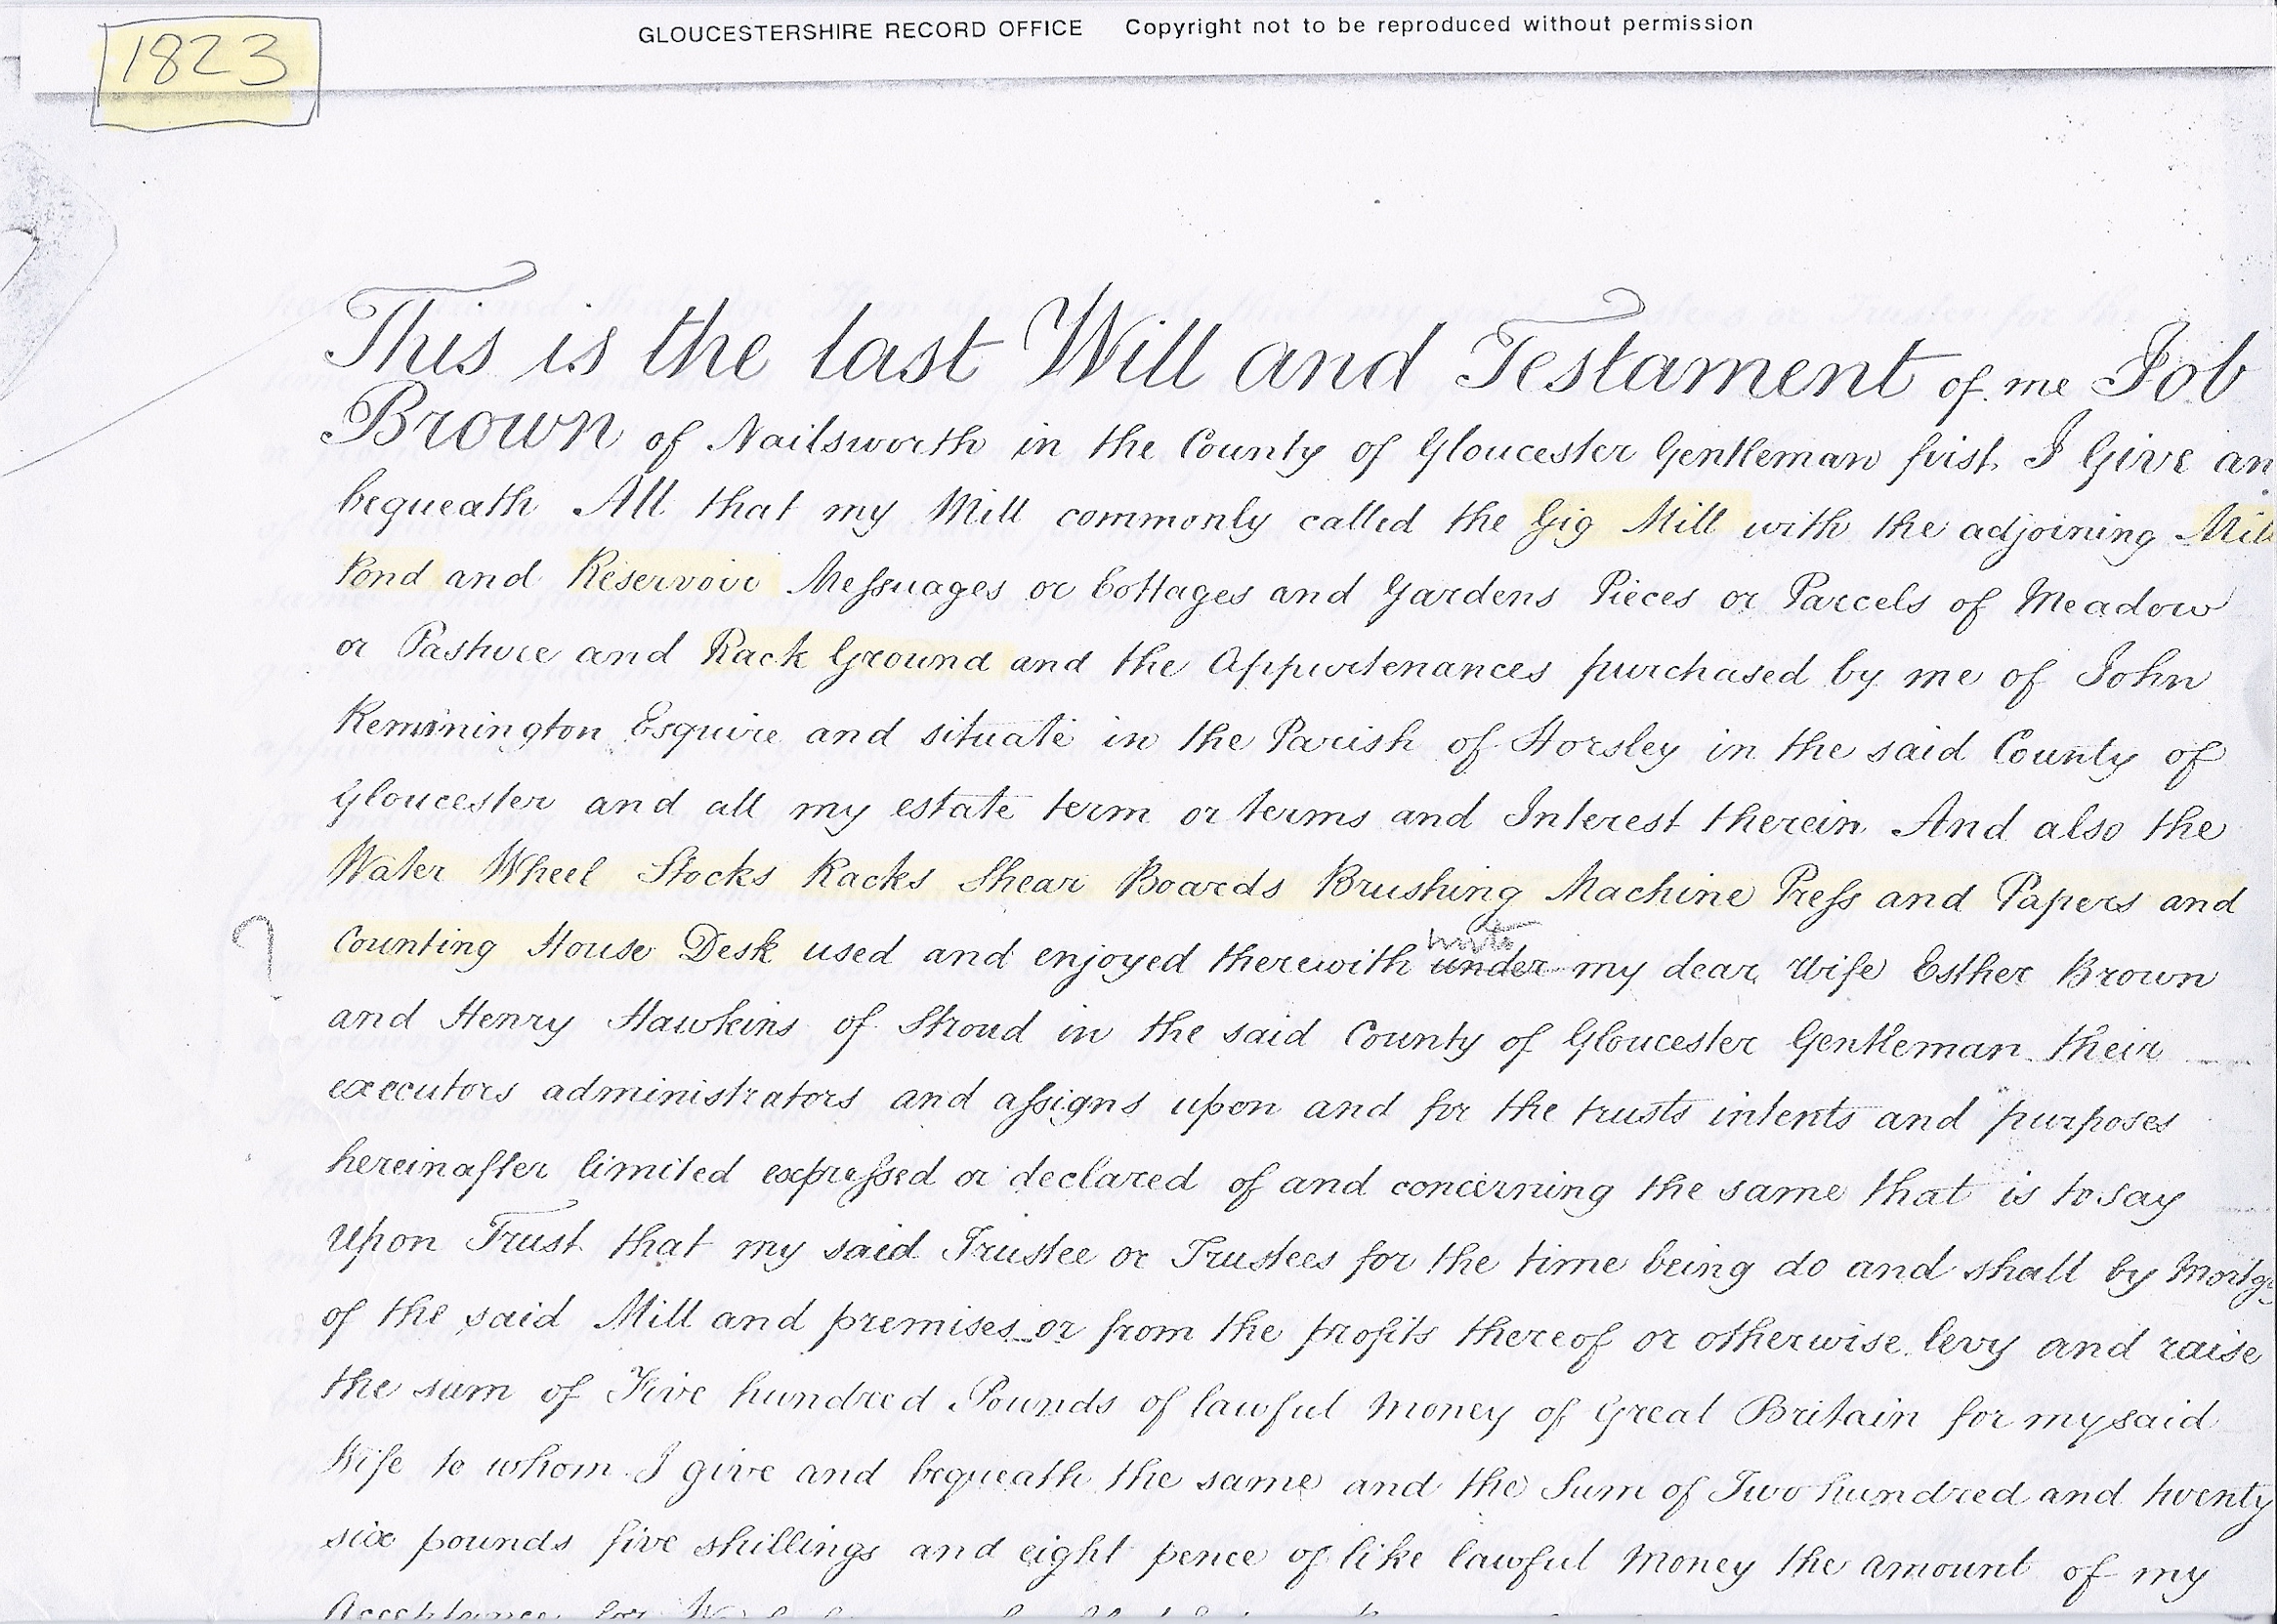 1823
GLOUCESTERSHIRE RECORD OFFICE Copyright not to be reproduced without permission
This is the last Will and Testament of me Job
Brown of Nailsworth in the County of Gloucester Gentleman first I Give an
bequeath All that my Mill commonly called the Gig Mill with the adjoining Mill
Pond and Reservoir Messuages or Cottages and Gardens Pieces or Parcels of Meadow
or Pasture and Rack Ground and the Appurtenances purchased by me of John
Remmington Esquire and situate in the Parish of Horsley in the said County of
Gloucester and all my estate term or terms and Interest therein And also the
Water Wheel Stocks Racks Shear Boards Brushing Machine Press and Papers and
?
unto
Counting House Desk used and enjoyed therewith under my dear Wife Esther Brown
and Henry Hawkins of Stroud in the said County of Gloucester Gentleman their
executors administrators and assigns upon and for the trusts intents and purposes
hereinafter limited expressed or declared of and concerning the same that is to say
Upon Trust that my said Trustee or Trustees for the time being do and shall by Mortg
of the said Mill and premises or from the profits thereof or otherwise levy and raise
the sum of Five hundred Pounds of lawful Money of Great Britain for my said
Wife to whom I give and bequeath the same and the Sum of Two hundred and twenty
six pounds five shillings and eight pence of like lawful Money the amount of my